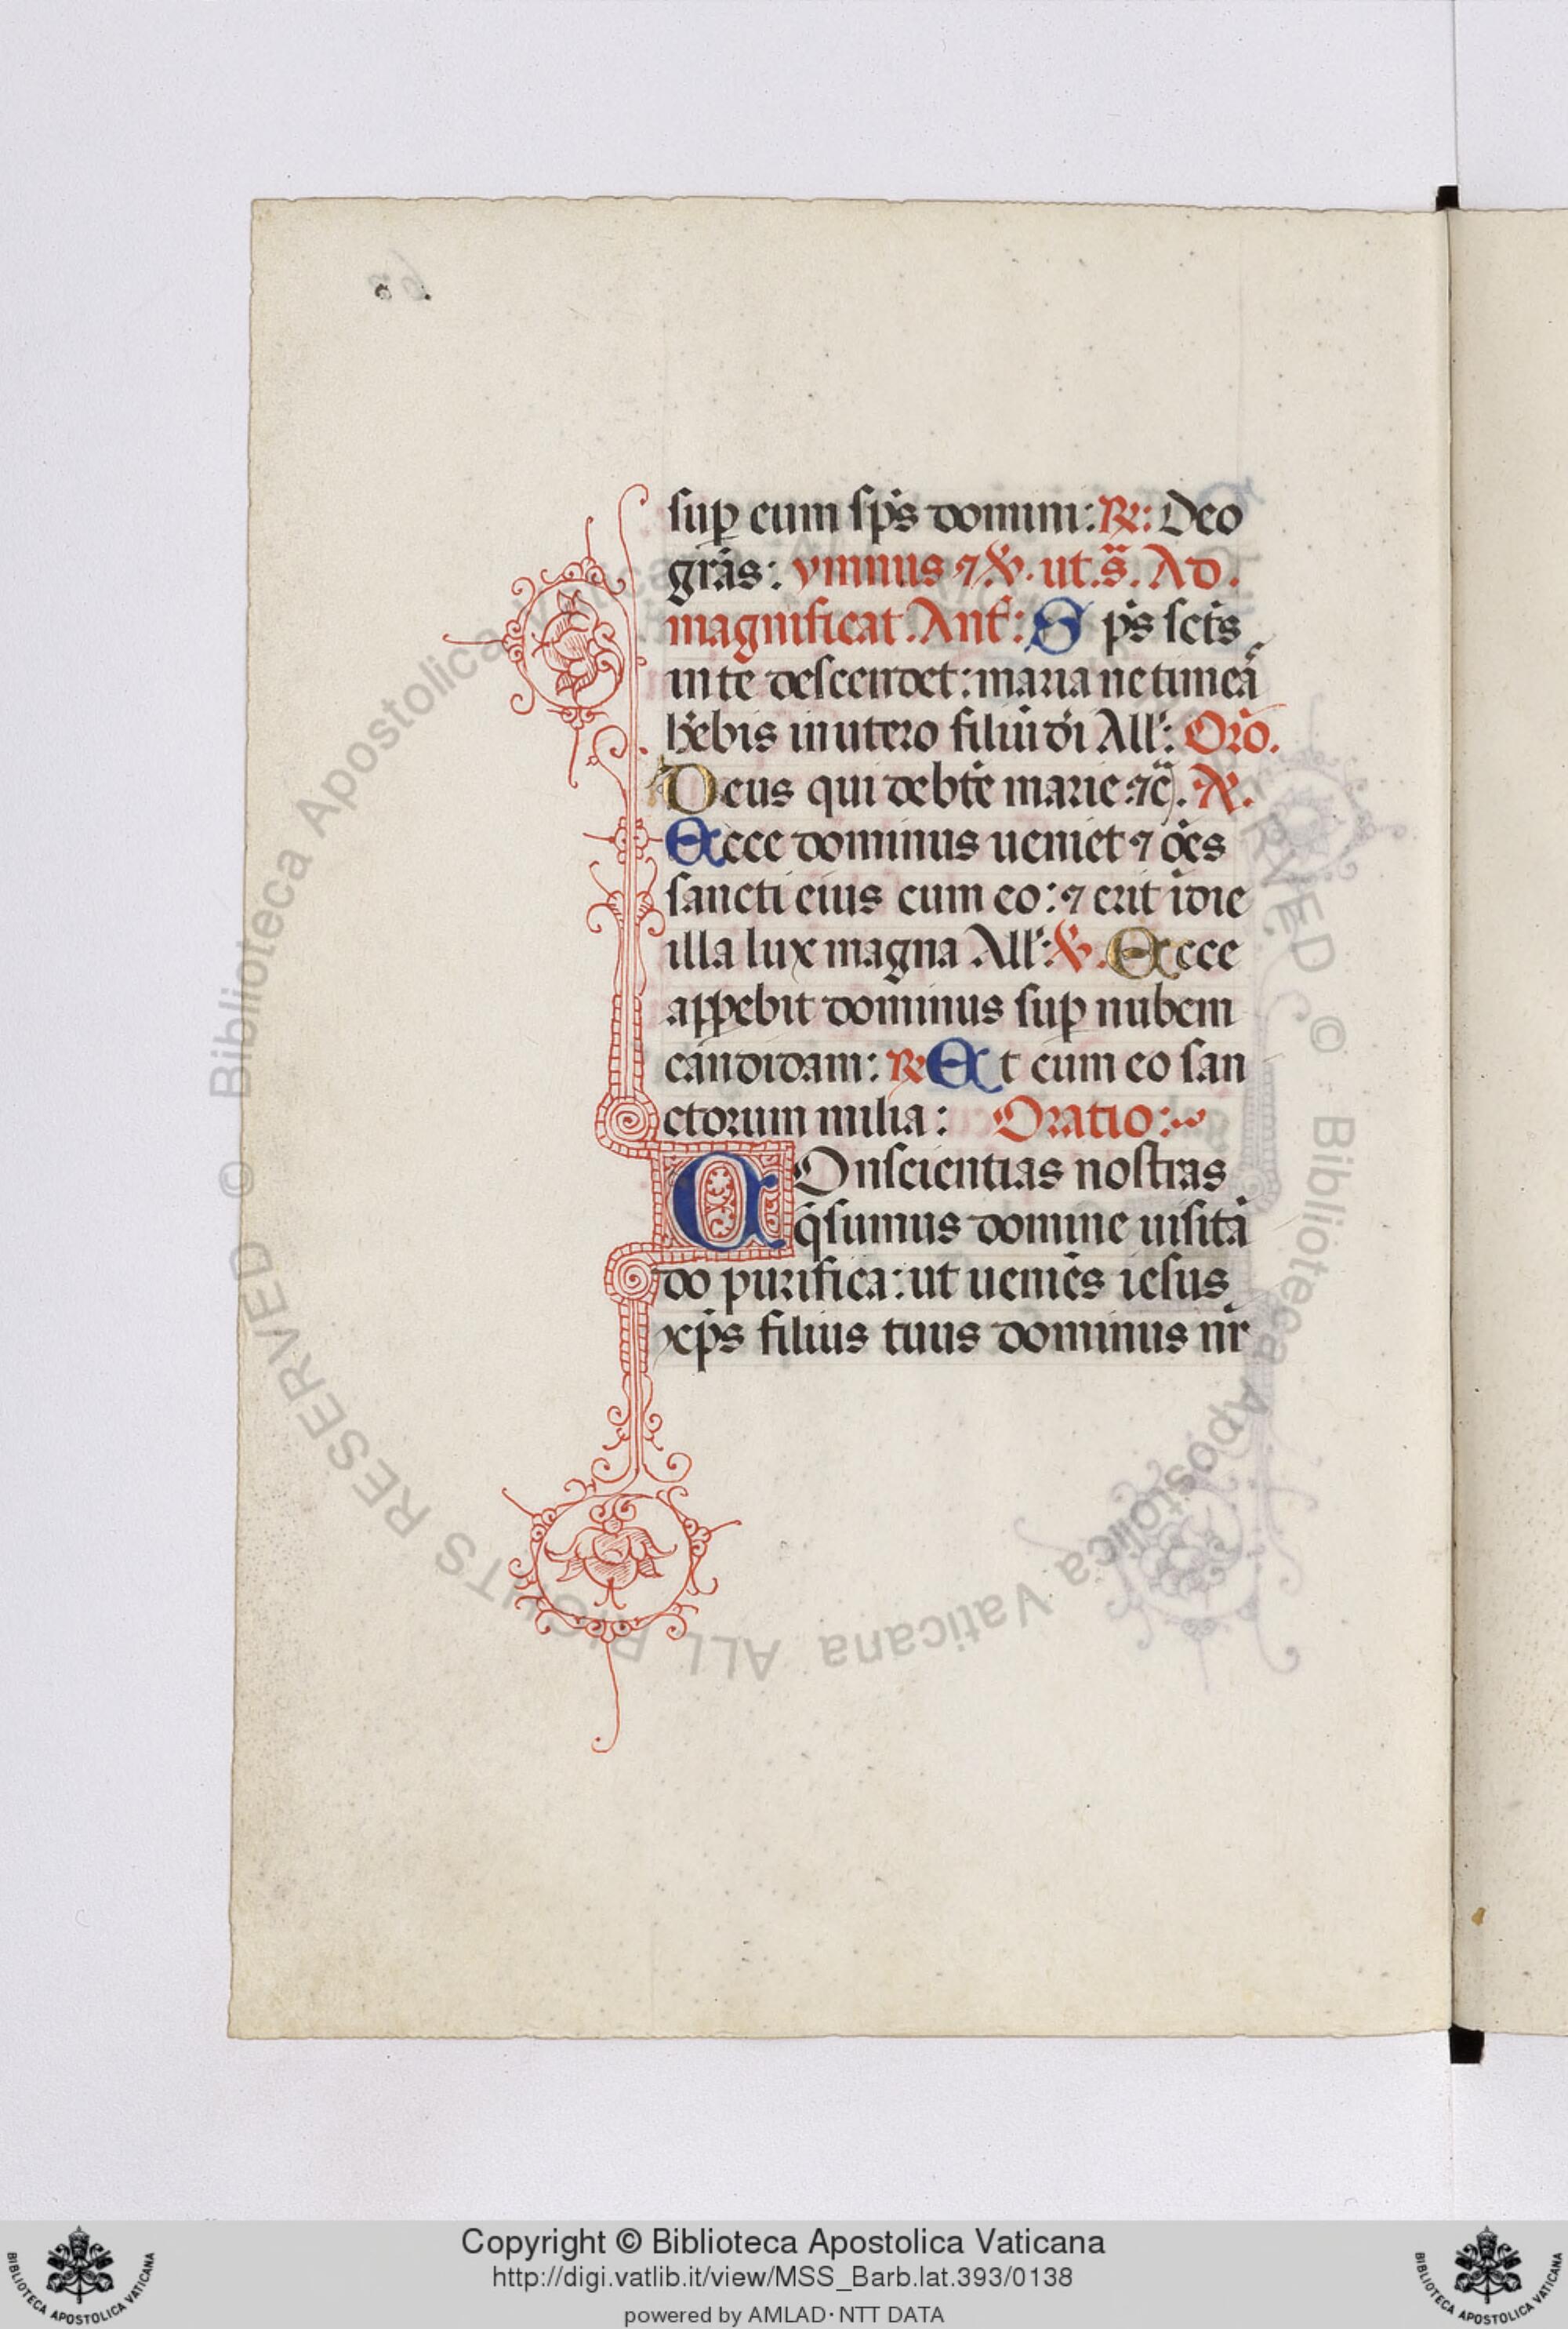 sup eum sp̄s domini: R̄: Deo
gr̄as: ymnus ⁊ V̄. ut.s̄. Ad.
magnificat. Ant̄: Sp̄s sc̄ts
in te descendet: maria ne timeā
hēbis in utero filiū dī All': Orō.
Deus qui de btē marie ⁊c̄. A.
Ecce dominus ueniet ⁊ oēs
sancti eius cum eo: ⁊ erit ī die
illa lux magna All': V̄. Ecce
apꝑebit dominus suꝑ nubem
candidam: R̄ Et cum eo san
ctorum milia: Oratio:
COnscientias nostras
q̄sumus domine uisitā
do purifica: ut ueniēs iesus
xp̄s filius tuus dominus nr̄
© Biblioteca Apostolica Vaticana ALL RIGHTS RESERVED
© Biblioteca Apostolica Vaticana
Copyright © Biblioteca Apostolica Vaticana
http://digi.vatlib.it/view/MSS_Barb.lat.393/0138
powered by AMLAD·NTT DATA
BIBLIOTECA APOSTOLICA VATICANA
BIBLIOTECA APOSTOLICA VATICANA